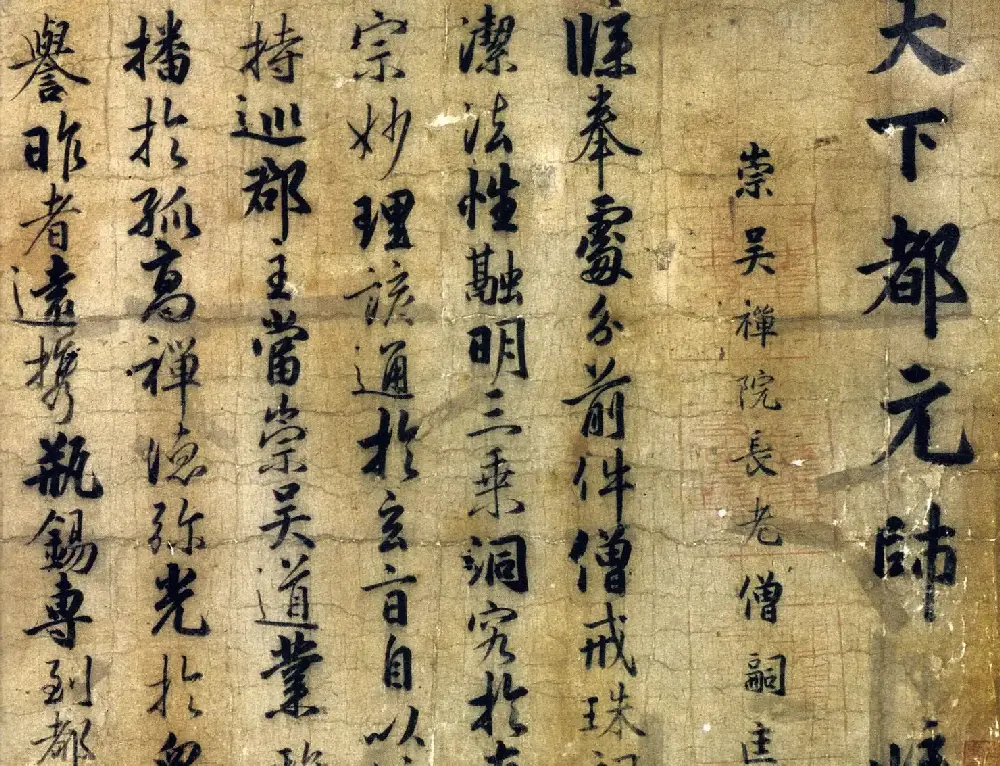 天下都元帥
崇吳禪院長老僧嗣匡
牒奉處分前件僧戒珠
潔法性融明三乗洞究於
宗妙理該通於玄言自以
持巡郡主當崇吳道業
播於孤高禪德弥光於
譽昨者遠攜瓶錫專到都